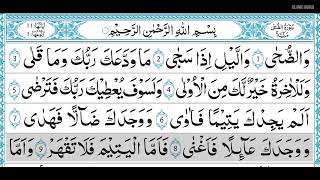 بِسْمِ اللهِ الرَّحْمٰنِ الرَّحِيْمِ
وَالضُّحٰى ۙ ١ وَالَّيْلِ اِذَا سَجٰى ۙ ٢ مَا وَدَّعَكَ رَبُّكَ وَمَا قَلٰى ۗ ٣
وَلَلْاٰخِرَةُ خَيْرٌ لَّكَ مِنَ الْاُوْلٰى ۗ ٤ وَلَسَوْفَ يُعْطِيْكَ رَبُّكَ فَتَرْضٰى ۗ ٥
اَلَمْ يَجِدْكَ يَتِيْمًا فَاٰوٰى ۖ ٦ وَوَجَدَكَ ضَآلًّا فَهَدٰى ۖ ٧
وَوَجَدَكَ عَآئِلًا فَاَغْنٰى ۗ ٨ فَاَمَّا الْيَتِيْمَ فَلَا تَقْهَرْ ۗ ٩ وَاَمَّا